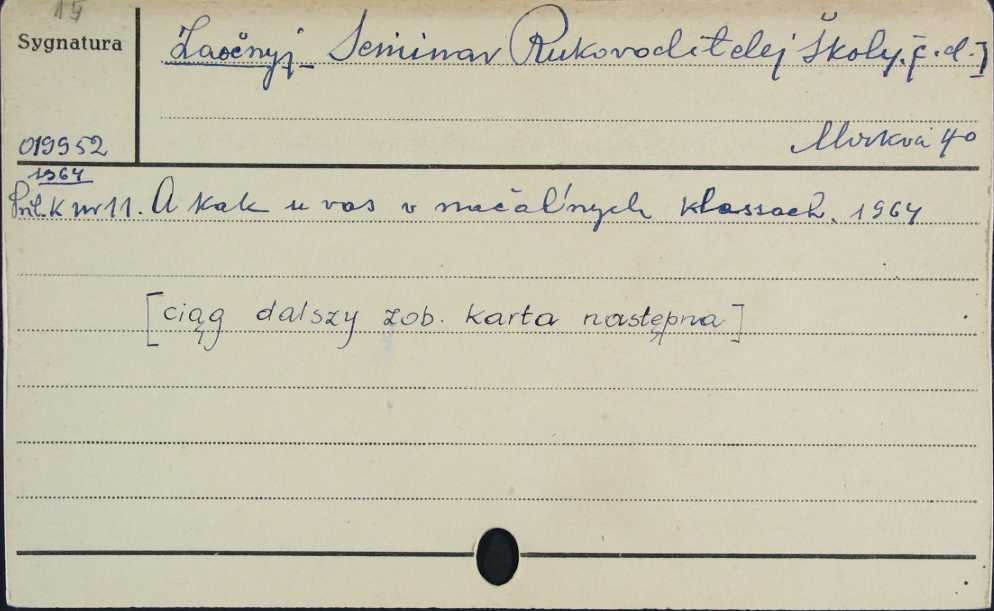 15
Sygnatura
Zaočnyj Seminar Rukovoditelej Školy. [c.d.]
Moskva 4º
019952
1964
Pril. K nr 11. A kak u vas v načal'nych klassach. 1964
[ciąg dalszy zob. karta następna]